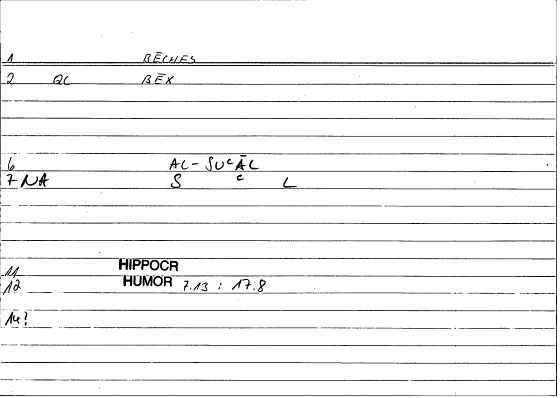 1 BĒCHES
2 QL BĒX
6 AL-SUᶜĀL
7 NA S ᶜ L
11 HIPPOCR
12 HUMOR 7.13 : 17.8
14?